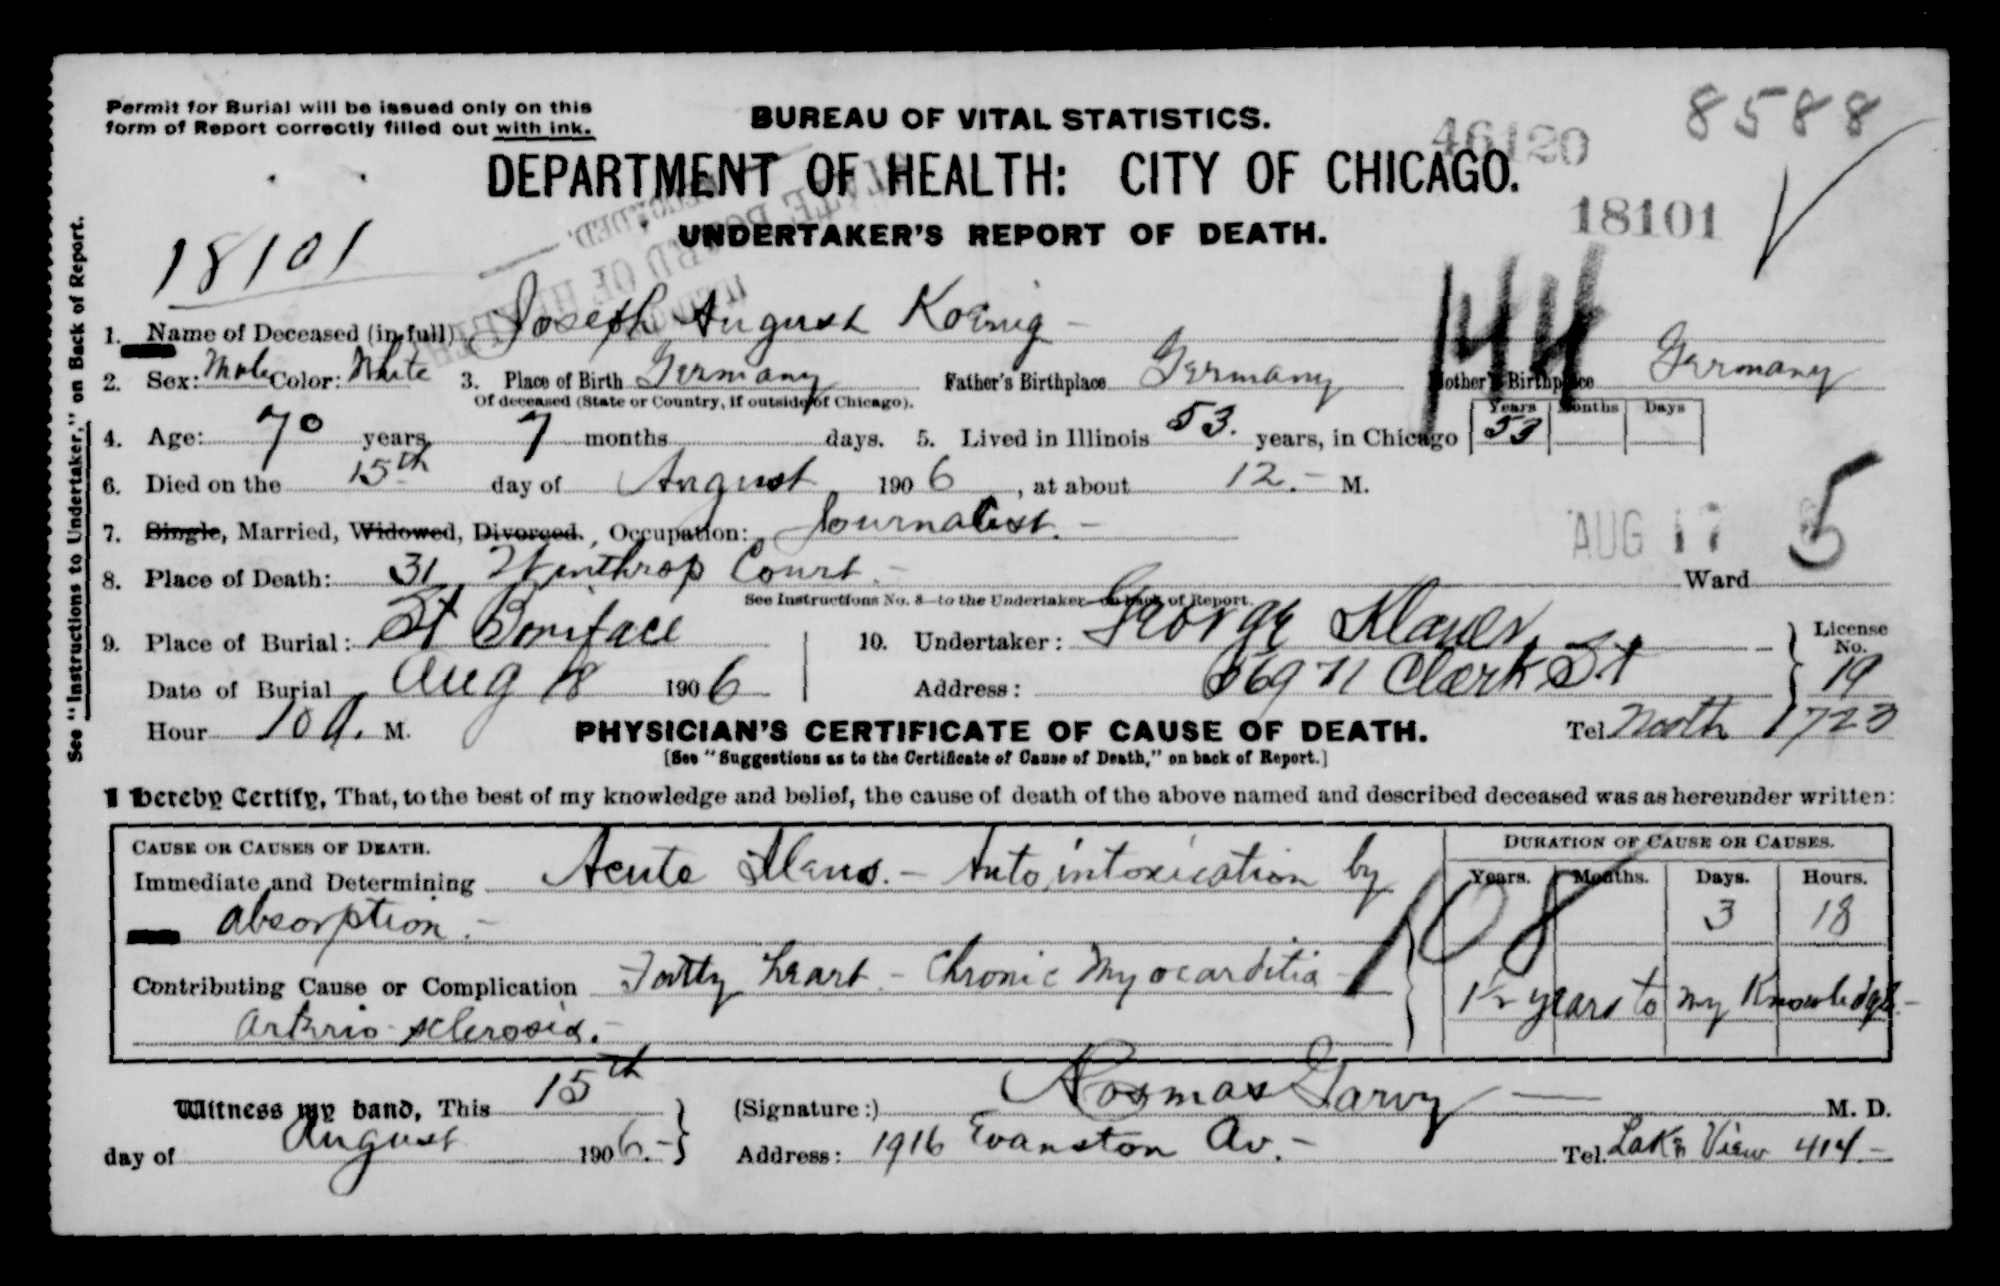 Permit for Burial will be issued only on this
form of Report correctly filled out with ink.
BUREAU OF VITAL STATISTICS.
8588
46120
DEPARTMENT OF HEALTH: CITY OF CHICAGO.
18101
UNDERTAKER'S REPORT OF DEATH.
18101
144
See "Instructions to Undertaker," on Back of Report.
1. Name of Deceased (in full) Joseph August Koenig
2. Sex: Male Color: White 3. Place of Birth Germany Father's Birthplace Germany Mother's Birthplace Germany
Of deceased (State or Country, if outside of Chicago).
Years Months Days
4. Age: 70 years 7 months days. 5. Lived in Illinois 53. years, in Chicago 53
6. Died on the 15th day of August 1906, at about 12.- M.
7. Single, Married, Widowed, Divorced, Occupation: Journalist.-
AUG 17 5
8. Place of Death: 31 Winthrop Court.- Ward
See Instructions No. 8 to the Undertaker on back of Report.
9. Place of Burial: St Boniface 10. Undertaker: George License No. 19
Date of Burial Aug 18 1906 Address: 69 N Clark St
Hour 10 A. M. PHYSICIAN'S CERTIFICATE OF CAUSE OF DEATH. Tel. North 1723
[See "Suggestions as to the Certificate of Cause of Death," on back of Report.]
I hereby Certify, That, to the best of my knowledge and belief, the cause of death of the above named and described deceased was as hereunder written:
CAUSE OR CAUSES OF DEATH. DURATION OF CAUSE OR CAUSES.
Years. Months. Days. Hours.
Immediate and Determining Acute Ileus.- Auto intoxication by
absorption.- 108 3 18
Contributing Cause or Complication Fatty heart - Chronic Myocarditis - 1½ years to my Knowledge.-
Arterio-sclerosis.-
Witness my hand, This 15th (Signature:) Kosmas Garvy M. D.
day of August 1906.- Address: 1916 Evanston Av.- Tel. Lake View 414.-